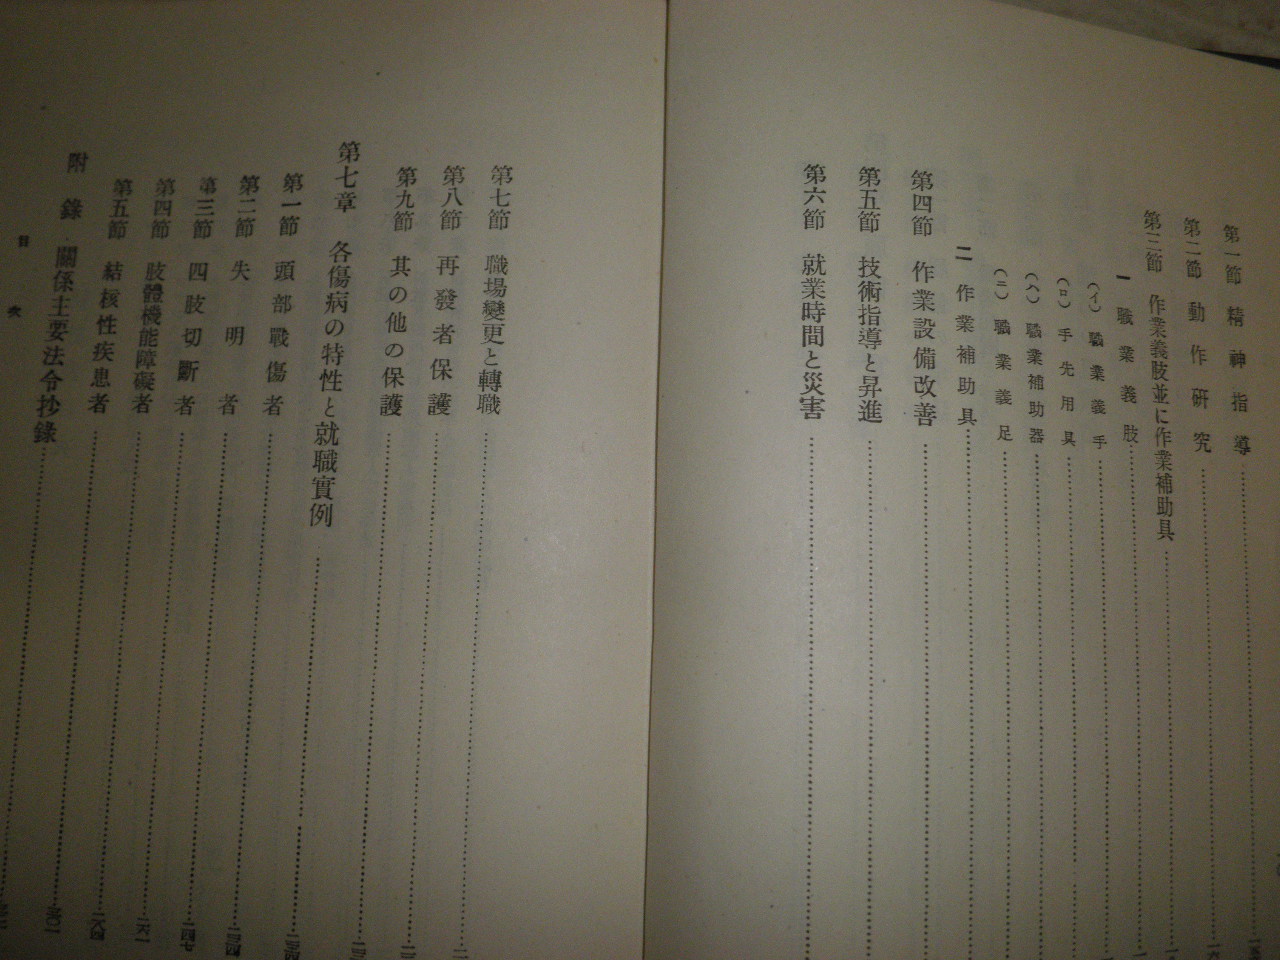 第一節 精神指導
第二節 動作研究
第三節 作業義肢並に作業補助具
一 職業義肢
(イ) 職業義手
(ロ) 手先用具
(ハ) 職業補助器
(ニ) 職業義足
二 作業補助具
第四節 作業設備改善
第五節 技術指導と昇進
第六節 就業時間と災害
第七節 職場變更と轉職
第八節 再發者保護
第九節 其の他の保護
第七章 各傷病の特性と就職實例
第一節 頭部戰傷者
第二節 失明者
第三節 四肢切斷者
第四節 肢體機能障礙者 一六一
第五節 結核性疾患者 一八四
附錄 關係主要法令抄錄
目次